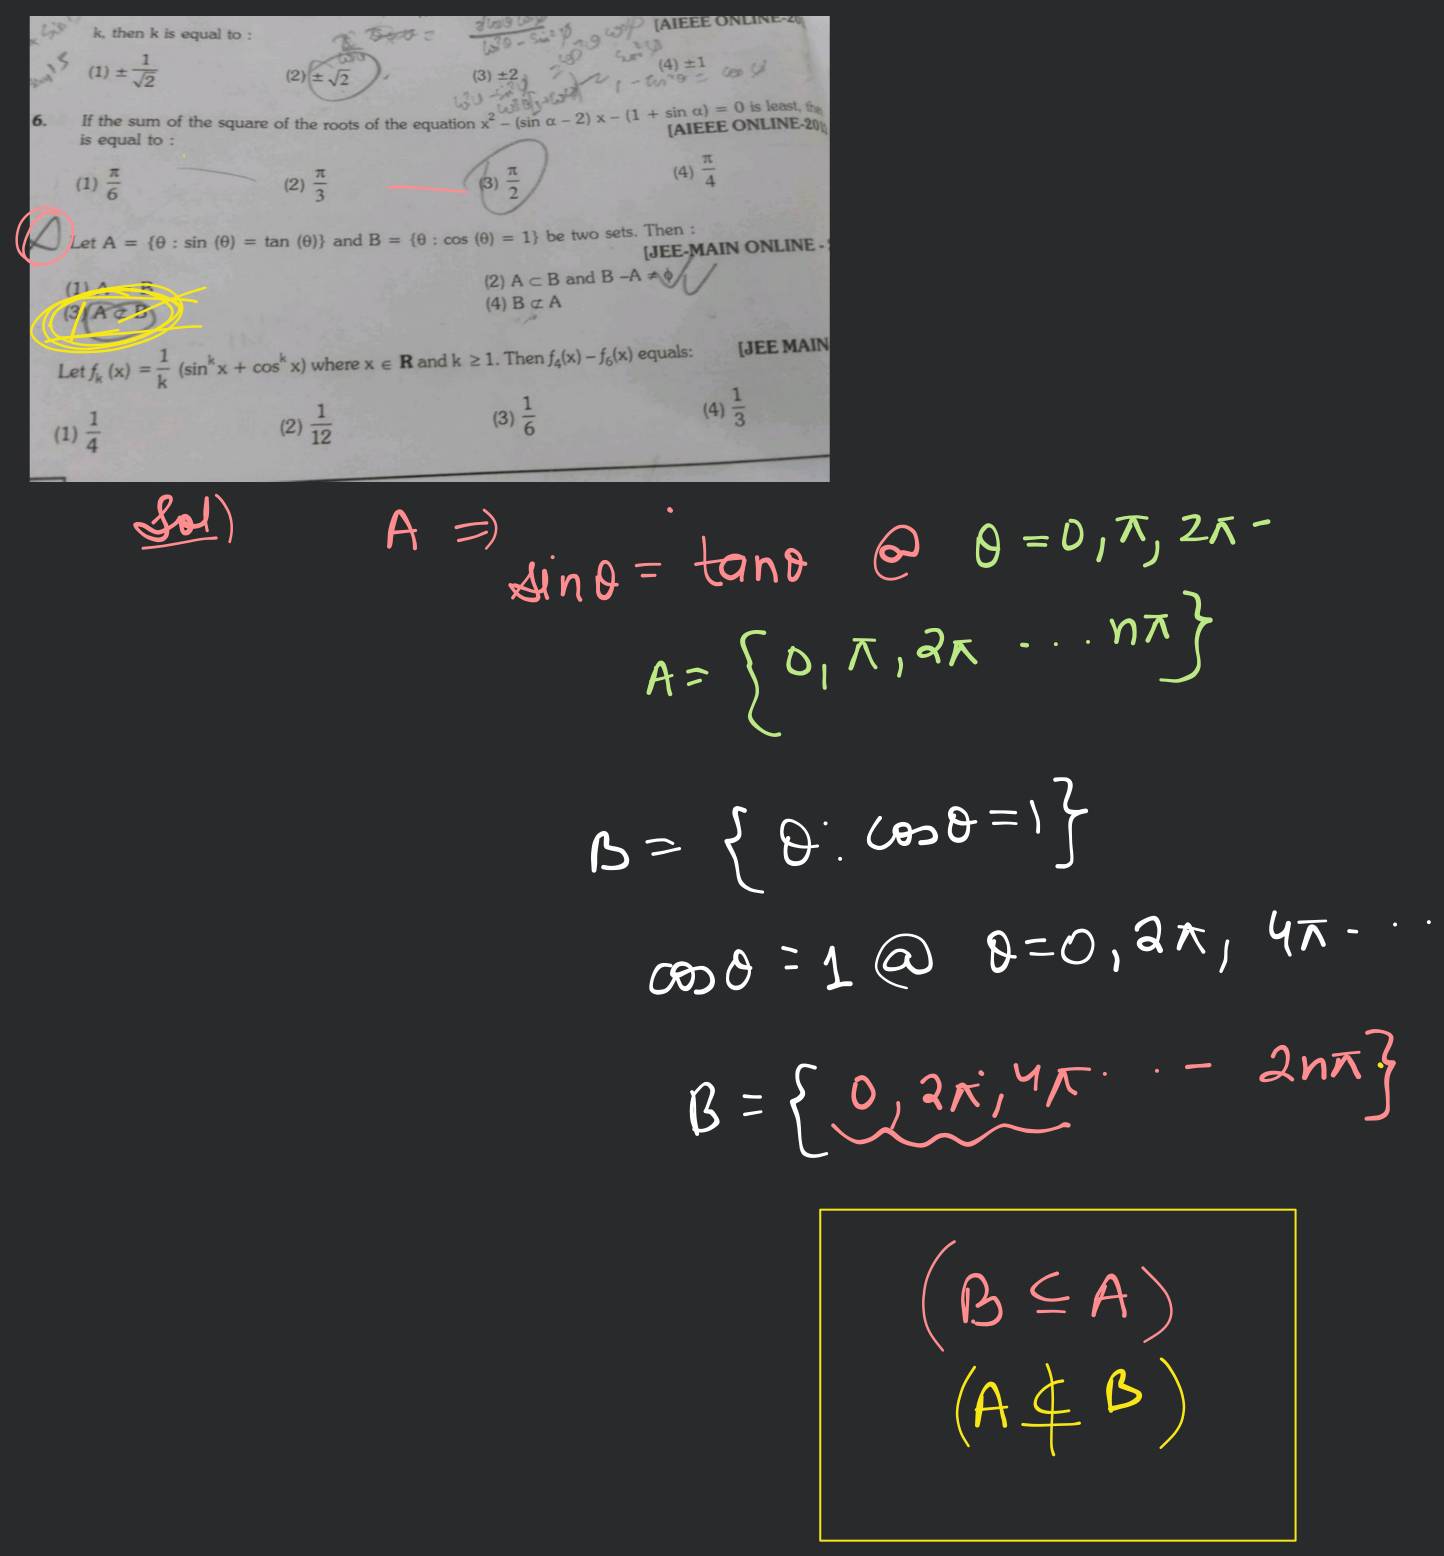 k, then k is equal to :
[AIEEE ONLINE-20
(1) ± 1/√2 (2) ± √2 (3) ±2 (4) ±1
6. If the sum of the square of the roots of the equation x² – (sin α – 2) x – (1 + sin α) = 0 is least, the
is equal to : [AIEEE ONLINE-201
(1) π/6 (2) π/3 (3) π/2 (4) π/4
Let A = {θ : sin (θ) = tan (θ)} and B = {θ : cos (θ) = 1} be two sets. Then :
[JEE-MAIN ONLINE -
(1) A B (2) A ⊂ B and B –A ≠ ϕ
(3) A ⊄ B (4) B ⊄ A
Let fₖ (x) = 1/k (sinᵏ x + cosᵏ x) where x ∈ R and k ≥ 1. Then f₄(x) – f₆(x) equals: [JEE MAIN
(1) 1/4 (2) 1/12 (3) 1/6 (4) 1/3
Sol) A ⇒
sinθ = tanθ @ θ = 0, π, 2π -
A = {0, π, 2π ... nπ}
B = {θ: cosθ = 1}
cosθ = 1 @ θ=0, 2π, 4π - ..
B = {0, 2π, 4π . . - 2nπ}
(B ⊆ A)
(A ⊈ B)